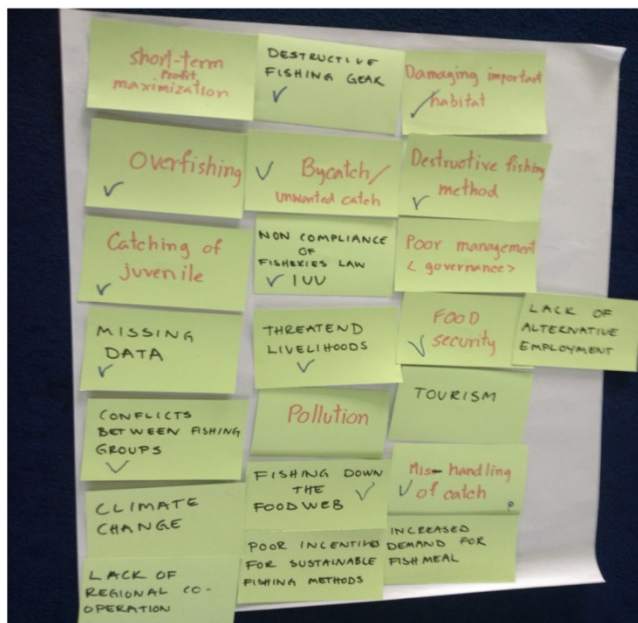 short-term
profit
maximization
DESTRUCTIVE
FISHING GEAR
✓
Damaging important
✓ habitat
Overfishing
✓
✓ Bycatch/
unwanted catch
Destructive fishing
method
✓
Catching of
juvenile
✓
NON COMPLIANCE
OF
FISHERIES LAW
✓ IUU
Poor management
< governance >
MISSING
DATA
✓
THREATEND
LIVELIHOODS
✓
FOOD
✓ security
LACK OF
ALTERNATIVE
EMPLOYMENT
CONFLICTS
BETWEEN FISHING
GROUPS
✓
Pollution
TOURISM
CLIMATE
CHANGE
FISHING DOWN
THE ✓
FOODWEB
Mis-handling
✓ of catch
?
LACK OF
REGIONAL CO-
OPERATION
POOR INCENTIVES
FOR SUSTAINABLE
FISHING METHODS
INCREASED
DEMAND FOR
FISHMEAL